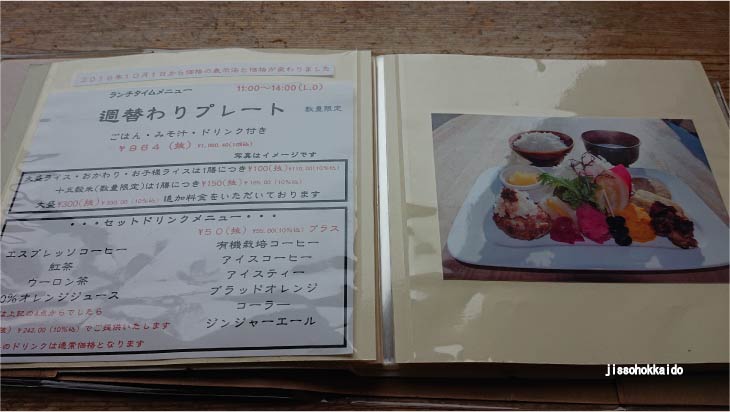 2019年10月1日から価格の表示法と価格が変わりました
ランチタイムメニュー 11:00～14:00(L.O)
週替わりプレート 数量限定
ごはん・みそ汁・ドリンク付き
(税)
写真はイメージです
大盛ライス・おかわり・お子様ライスは1膳につき¥100(税)¥110.00(10%税)
十五穀米(数量限定)は1膳につき¥150(税)(10%税)
大盛¥300(税)(10%税) 追加料金をいただいております
・・・セットドリンクメニュー・・・
¥50(税)¥55.00(10%税) プラス
エスプレッソコーヒー 有機栽培コーヒー
紅茶 アイスコーヒー
ウーロン茶 アイスティー
0%オレンジジュース ブラッドオレンジ
コーラー
は上記の4点からでしたら ジンジャーエール
¥242.00(10%税)でご提供いたします
のドリンクは通常価格となります
jissohokkaido